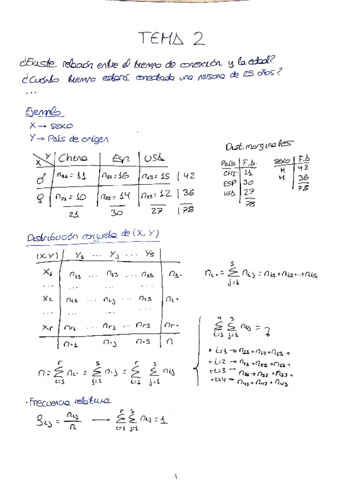 TEMA 2
¿Existe relación entre el tiempo de conexión y la edad?
¿Cuánto tiempo estará conectada una persona de 25 años?
...
Ejemplo
X → sexo
Y → País de origen
X Y | China | Esp | USA
♂ | n₁₁ = 11 | n₁₂ = 16 | n₁₃ = 15 | 42
♀ | n₂₁ = 10 | n₂₂ = 14 | n₂₃ = 12 | 36
21 30 27 | 78
Dist. marginales
País | F.A
CHI | 21
ESP | 30
USA | 27
78
sexo | F.A
H | 42
M | 36
78
Distribución conjunta de (X, Y)
(X, Y) | Y₁ ... Yⱼ ... Yₛ
X₁ | n₁₁ ... n₁ⱼ ... n₁ₛ | n₁.
... ... ... ...
Xᵢ | nᵢ₁ ... nᵢⱼ ... nᵢₛ | nᵢ.
... ... ... ...
Xᵣ | nᵣ₁ ... nᵣⱼ ... nᵣₛ | nᵣ.
n.₁ n.ⱼ n.ₛ | n
nᵢ. = Σⱼ₌₁ˢ nᵢⱼ = nᵢ₁ + nᵢ₂ + ... + nᵢₛ
n = Σᵢ₌₁ʳ nᵢ. = Σⱼ₌₁ˢ n.ⱼ = Σᵢ₌₁ʳ Σⱼ₌₁ˢ nᵢⱼ
Σᵢ₌₁⁴ Σⱼ₌₁³ nᵢⱼ = ?
• i=1 → n₁₁ + n₁₂ + n₁₃ +
+ i=2 → n₂₁ + n₂₂ + n₂₃ +
+ i=3 → n₃₁ + n₃₂ + n₃₃ +
+ i=4 → n₄₁ + n₄₂ + n₄₃
• Frecuencia relativa
fᵢⱼ = nᵢⱼ / n → Σᵢ₌₁ʳ Σⱼ₌₁ˢ nᵢⱼ = 1
1